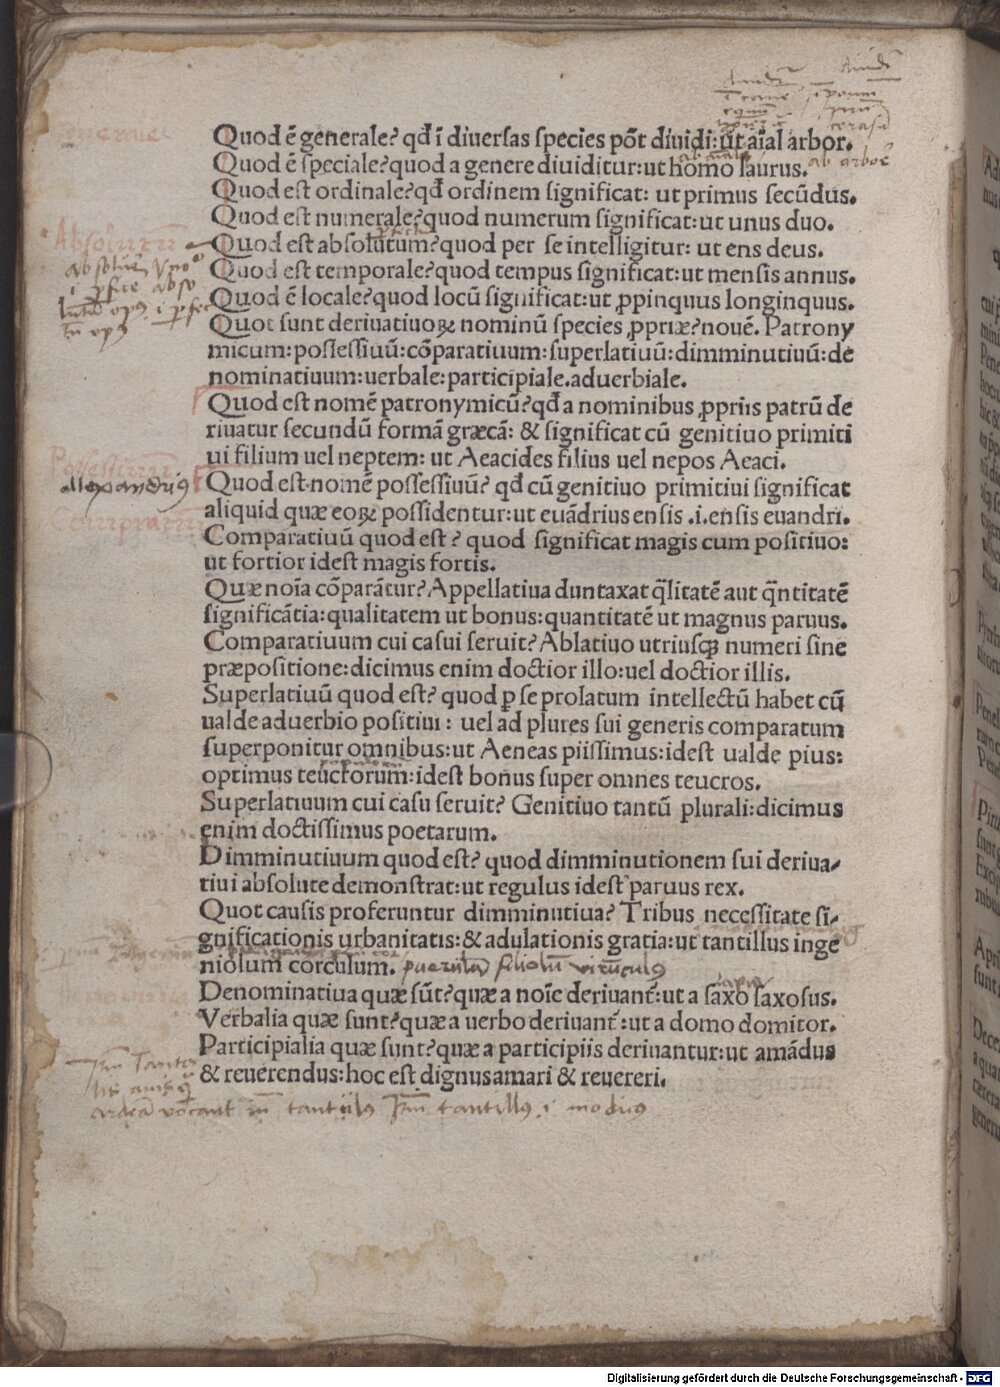 Quod ē generale? qđ ī diuersas species pōt diuidi: ut aīal arbor.
Quod ē speciale? quod a genere diuiditur: ut homo laurus. ab arbore
Quod est ordinale? qđ ordinem significat: ut primus secūdus.
Quod est numerale? quod numerum significat: ut unus duo.
Quod est absolutum? quod per se intelligitur: ut ens deus.
Quod est temporale? quod tempus significat: ut mensis annus.
Quod ē locale? quod locū significat: ut ꝓpinquus longinquus.
Quot sunt deriuatiuoꝝ nominū species ꝓpriæ? nouē. Patrony
micum: possessiuū: cōparatiuum: superlatiuū: dimminutiuū: de
nominatiuum: uerbale: participiale. aduerbiale.
Quod est nomē patronymicū? qđ a nominibus ꝓpriis patrū de
riuatur secundū formā græcā: & significat cū genitiuo primiti
ui filium uel neptem: ut Aeacides filius uel nepos Aeaci.
Quod est nomē possessiuū? qđ cū genitiuo primitiui significat
aliquid quæ eoꝝ possidentur: ut euādrius ensis .i. ensis euandri.
Comparatiuū quod est? quod significat magis cum positiuo:
ut fortior idest magis fortis.
Quæ noīa cōparātur? Appellatiua duntaxat q̄litatē aut q̄ntitatē
significātia: qualitatem ut bonus: quantitatē ut magnus paruus.
Comparatiuum cui casui seruit? Ablatiuo utriusqꝫ numeri sine
præpositione: dicimus enim doctior illo: uel doctior illis.
Superlatiuū quod est? quod ꝑ se prolatum intellectū habet cū
ualde aduerbio positiui: uel ad plures sui generis comparatum
superponitur omnibus: ut Aeneas piissimus: idest ualde pius:
optimus teucrorum: idest bonus super omnes teucros.
Superlatiuum cui casu seruit? Genitiuo tantū plurali: dicimus
enim doctissimus poetarum.
Dimminutiuum quod est? quod dimminutionem sui deriua-
tiui absolute demonstrat: ut regulus idest paruus rex.
Quot causis proferuntur dimminutiua? Tribus necessitate si-
gnificationis urbanitatis: & adulationis gratia: ut tantillus inge
niolum corculum.
Denominatiua quæ sūt? quæ a noīe deriuant̄: ut a saxo saxosus.
Verbalia quæ sunt? quæ a uerbo deriuant̄: ut a domo domitor.
Participialia quæ sunt? quæ a participiis deriuantur: ut amādus
& reuerendus: hoc est dignus amari & reuereri.
Digitalisierung gefördert durch die Deutsche Forschungsgemeinschaft - DFG